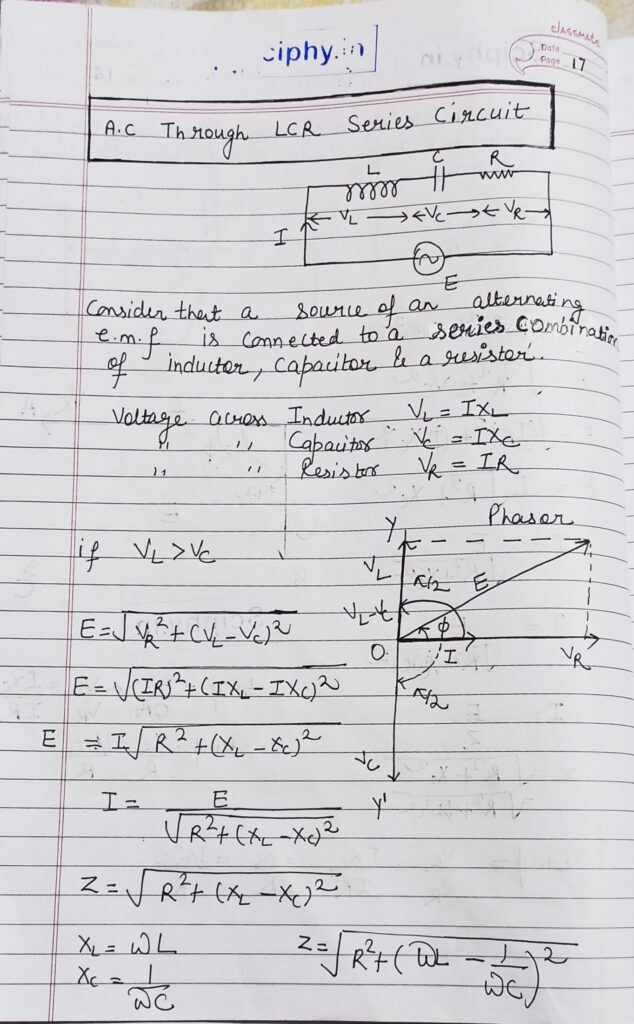 ciphy.in
classmate
Date
Page 17
A.C Through LCR Series Circuit
L C R
VL VC VR
I
E
Consider that a source of an alternating
e.m.f is connected to a series Combination
of inductor, Capacitor & a resistor.
Voltage across Inductor VL = IXL
" " Capacitor VC = IXC
" " Resistor VR = IR
Phasor
Y
if VL > VC
VL
π/2
E
VL-VC
ϕ
E = √VR² + (VL - VC)²
O
I
VR
E = √(IR)² + (IXL - IXC)²
π/2
E = I√R² + (XL - XC)²
VC
Y'
I = E / √R² + (XL - XC)²
Z = √R² + (XL - XC)²
XL = ωL
XC = 1/ωC
Z = √R² + (ωL - 1/ωC)²